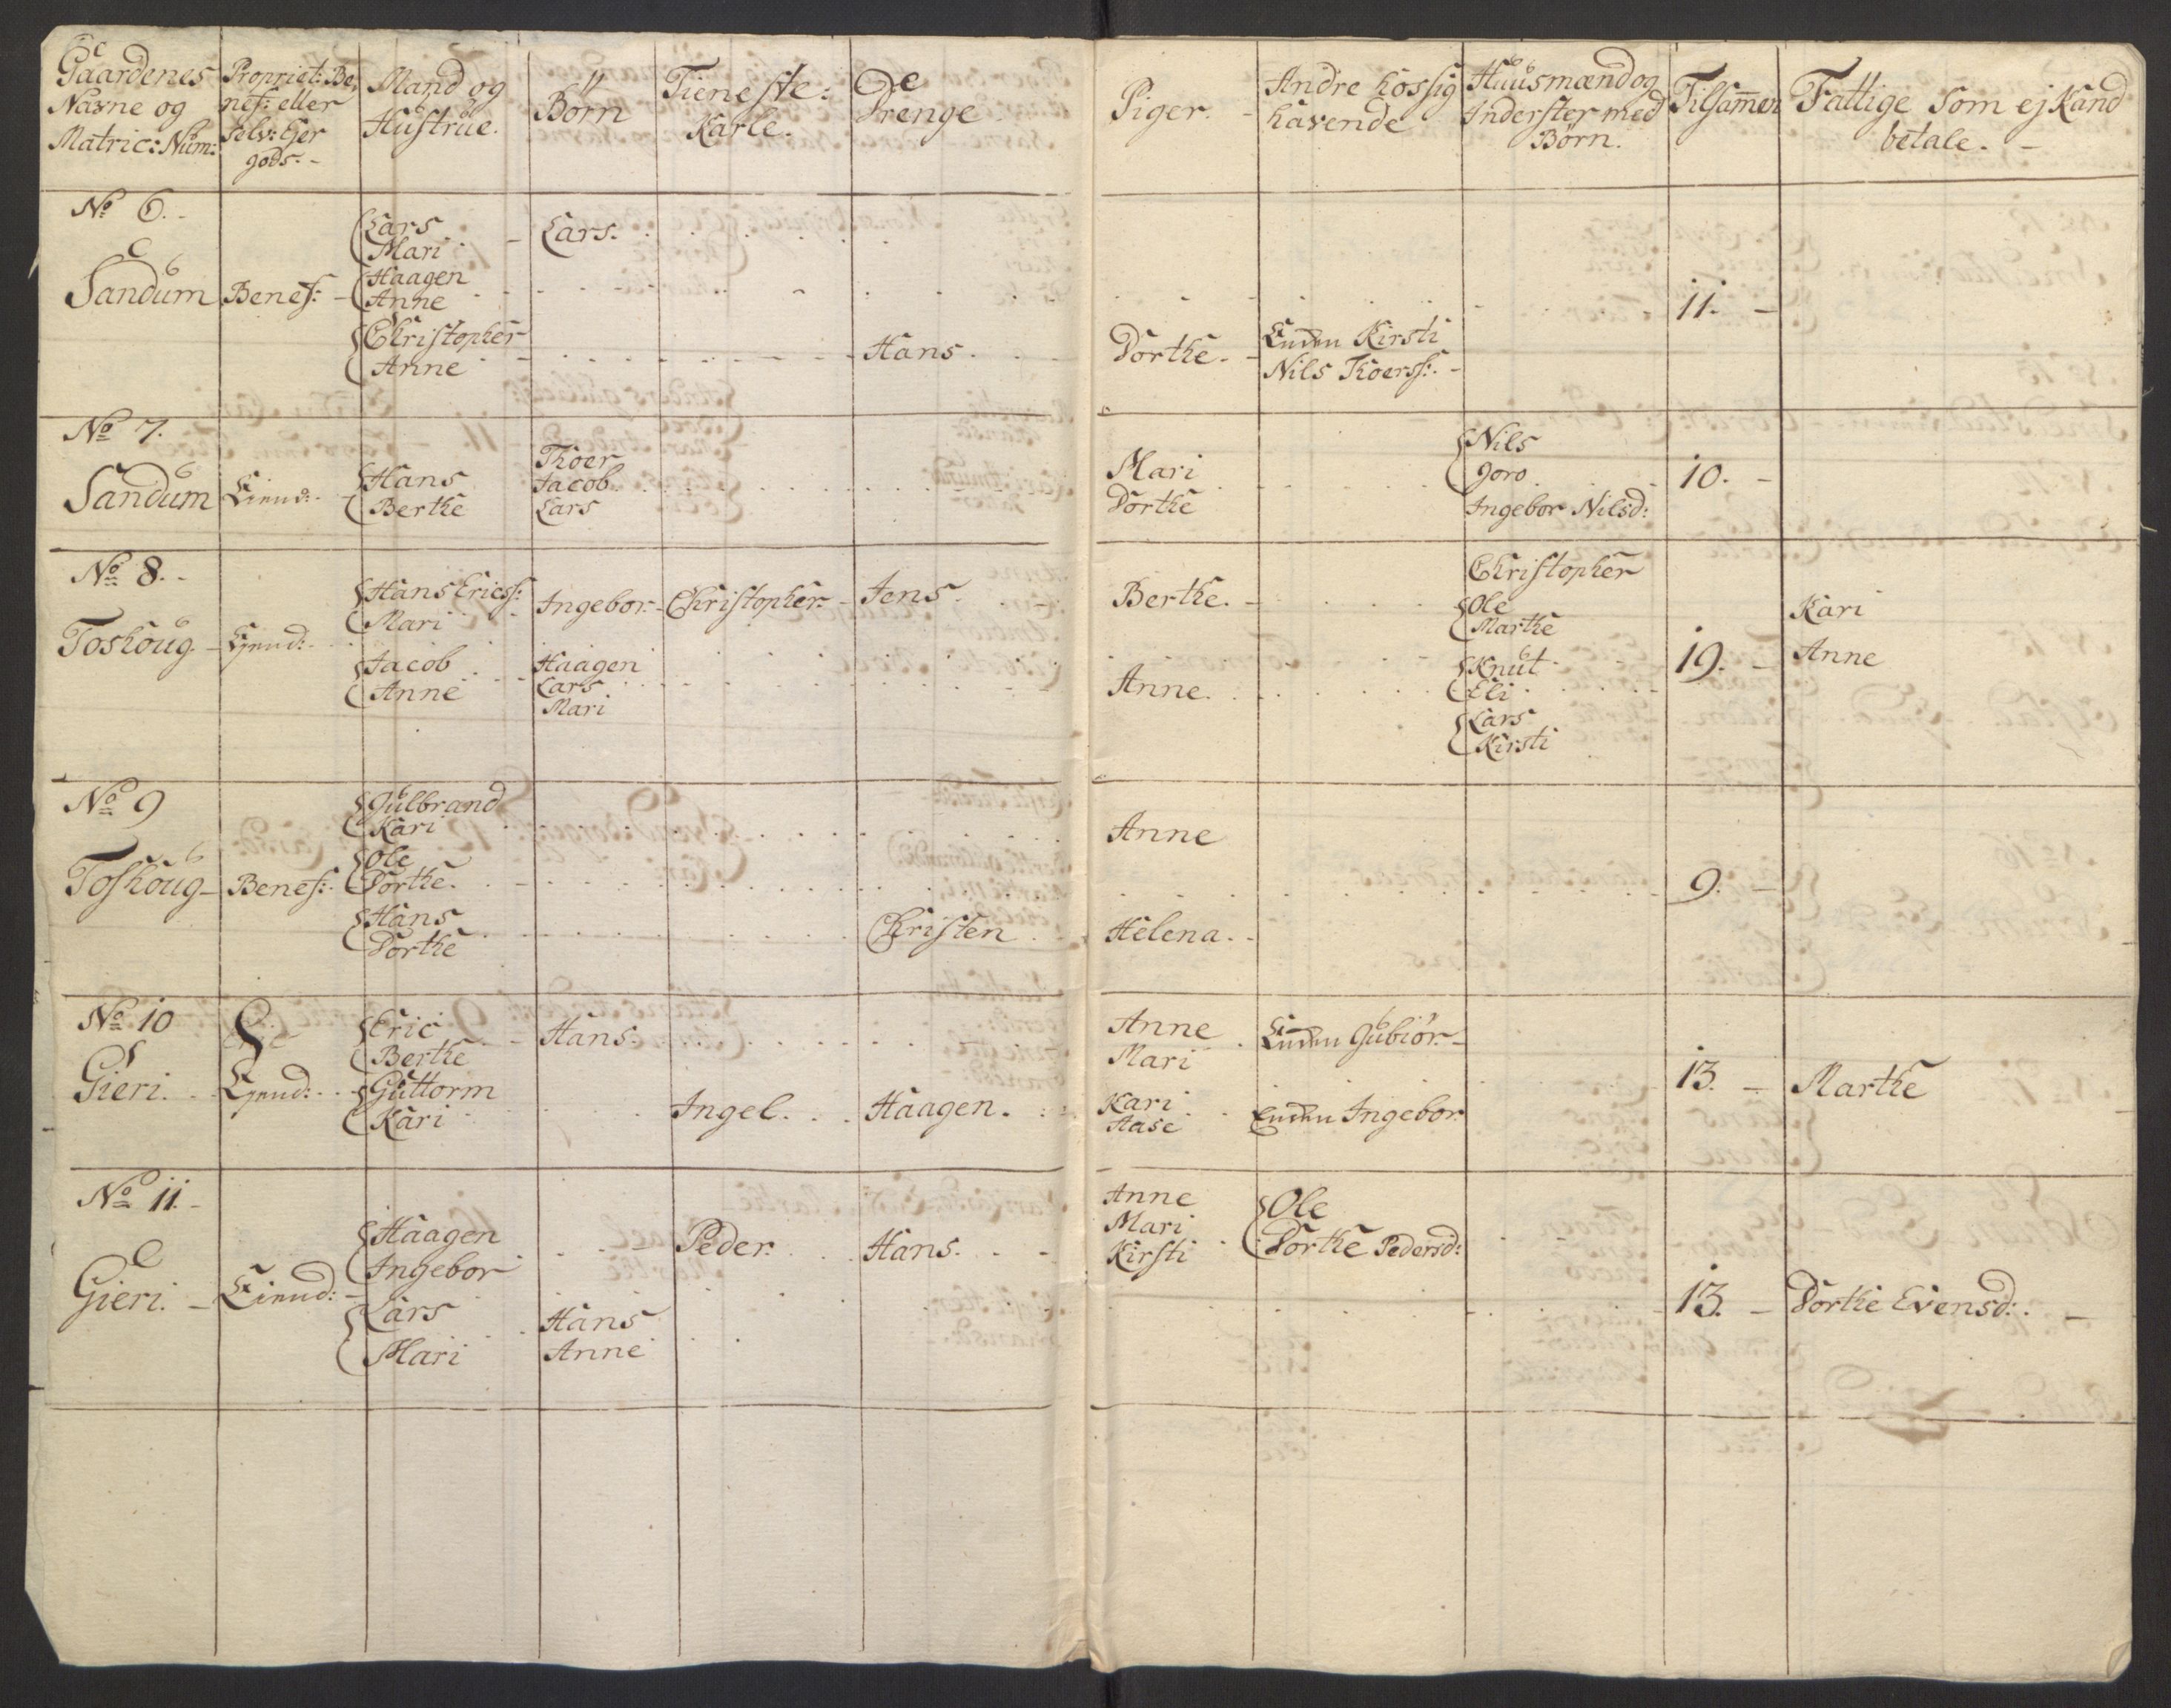 Gaardenes Navne og Matric: Num:
Propriet: Benef: eller Selv: Ejer gods. -
Mand og Hustrue.
Børn
Tieneste: Karle.
Drenge
Piger.
Andre hos sig havende
Huusmænd og Inderster med Børn.
Tilsamen
Fattige Som ej Kand betale. -
No 6. -
Sandum
Benef: -
Lars
Mari
Haagen
Anne
Christopher
Anne
Lars.
Hans.
Dorthe. -
Enken Kirsti
Nils Thoers: -
11. -
No 7.
Sandum
Eiend: -
Hans
Berthe
Thoer
Jacob
Lars
Mari
Dorthe
Nils
Goro
Ingebor Nilsd:
10. -
No 8. -
Toshoug -
Ejend: -
Hans Erics:
Mari
Jacob
Anne
Ingebor. -
Haagen
Lars
Mari
Christopher. -
Jens.
Berthe. -
Anne.
Christopher
Ole
Marthe
Knut
Eli
Lars
Kirsti
19. -
Kari
Anne
No 9
Toshoug -
Benef: -
Gulbrand
Kari
Ole
Dorthe.
Hans
Dorthe
Christen
Anne
Helena. -
9. -
No 10
Gieri.
Ejend: -
Eric
Berthe
Guttorm
Kari
Hans.
Ingel.
Haagen.
Anne
Mari
Kari
Aase
Enken Gubiør. -
Enken Ingebor.
13. -
Marthe
No 11. -
Gieri. -
Eiend: -
Haagen
Ingebor
Lars
Mari
Hans
Anne
Peder.
Hans. -
Anne
Mari
Kirsti
Ole
Dorthe Pedersd:
13. -
Dorthe Evensd: -